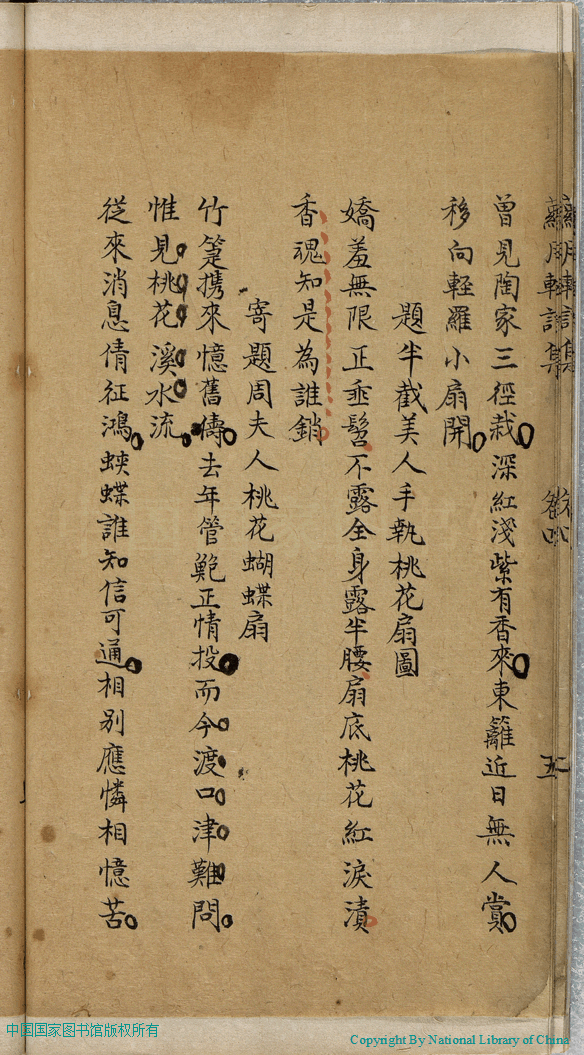 曾見陶家三徑栽深紅淺紫有香來東籬近日無人賞
移向輕羅小扇開
題半截美人手執桃花扇圖
嬌羞無限正垂髫不露全身露半腰扇底桃花紅淚漬
香魂知是為誰銷
寄題周夫人桃花蝴蝶扇
竹篷携來憶舊儔去年管鮑正情投而今渡口津難問
惟見桃花溪水流
從來消息倩征鴻蛺蝶誰知信可通相别應憐相憶苦
中国国家图书馆版权所有
Copyright By National Library of China